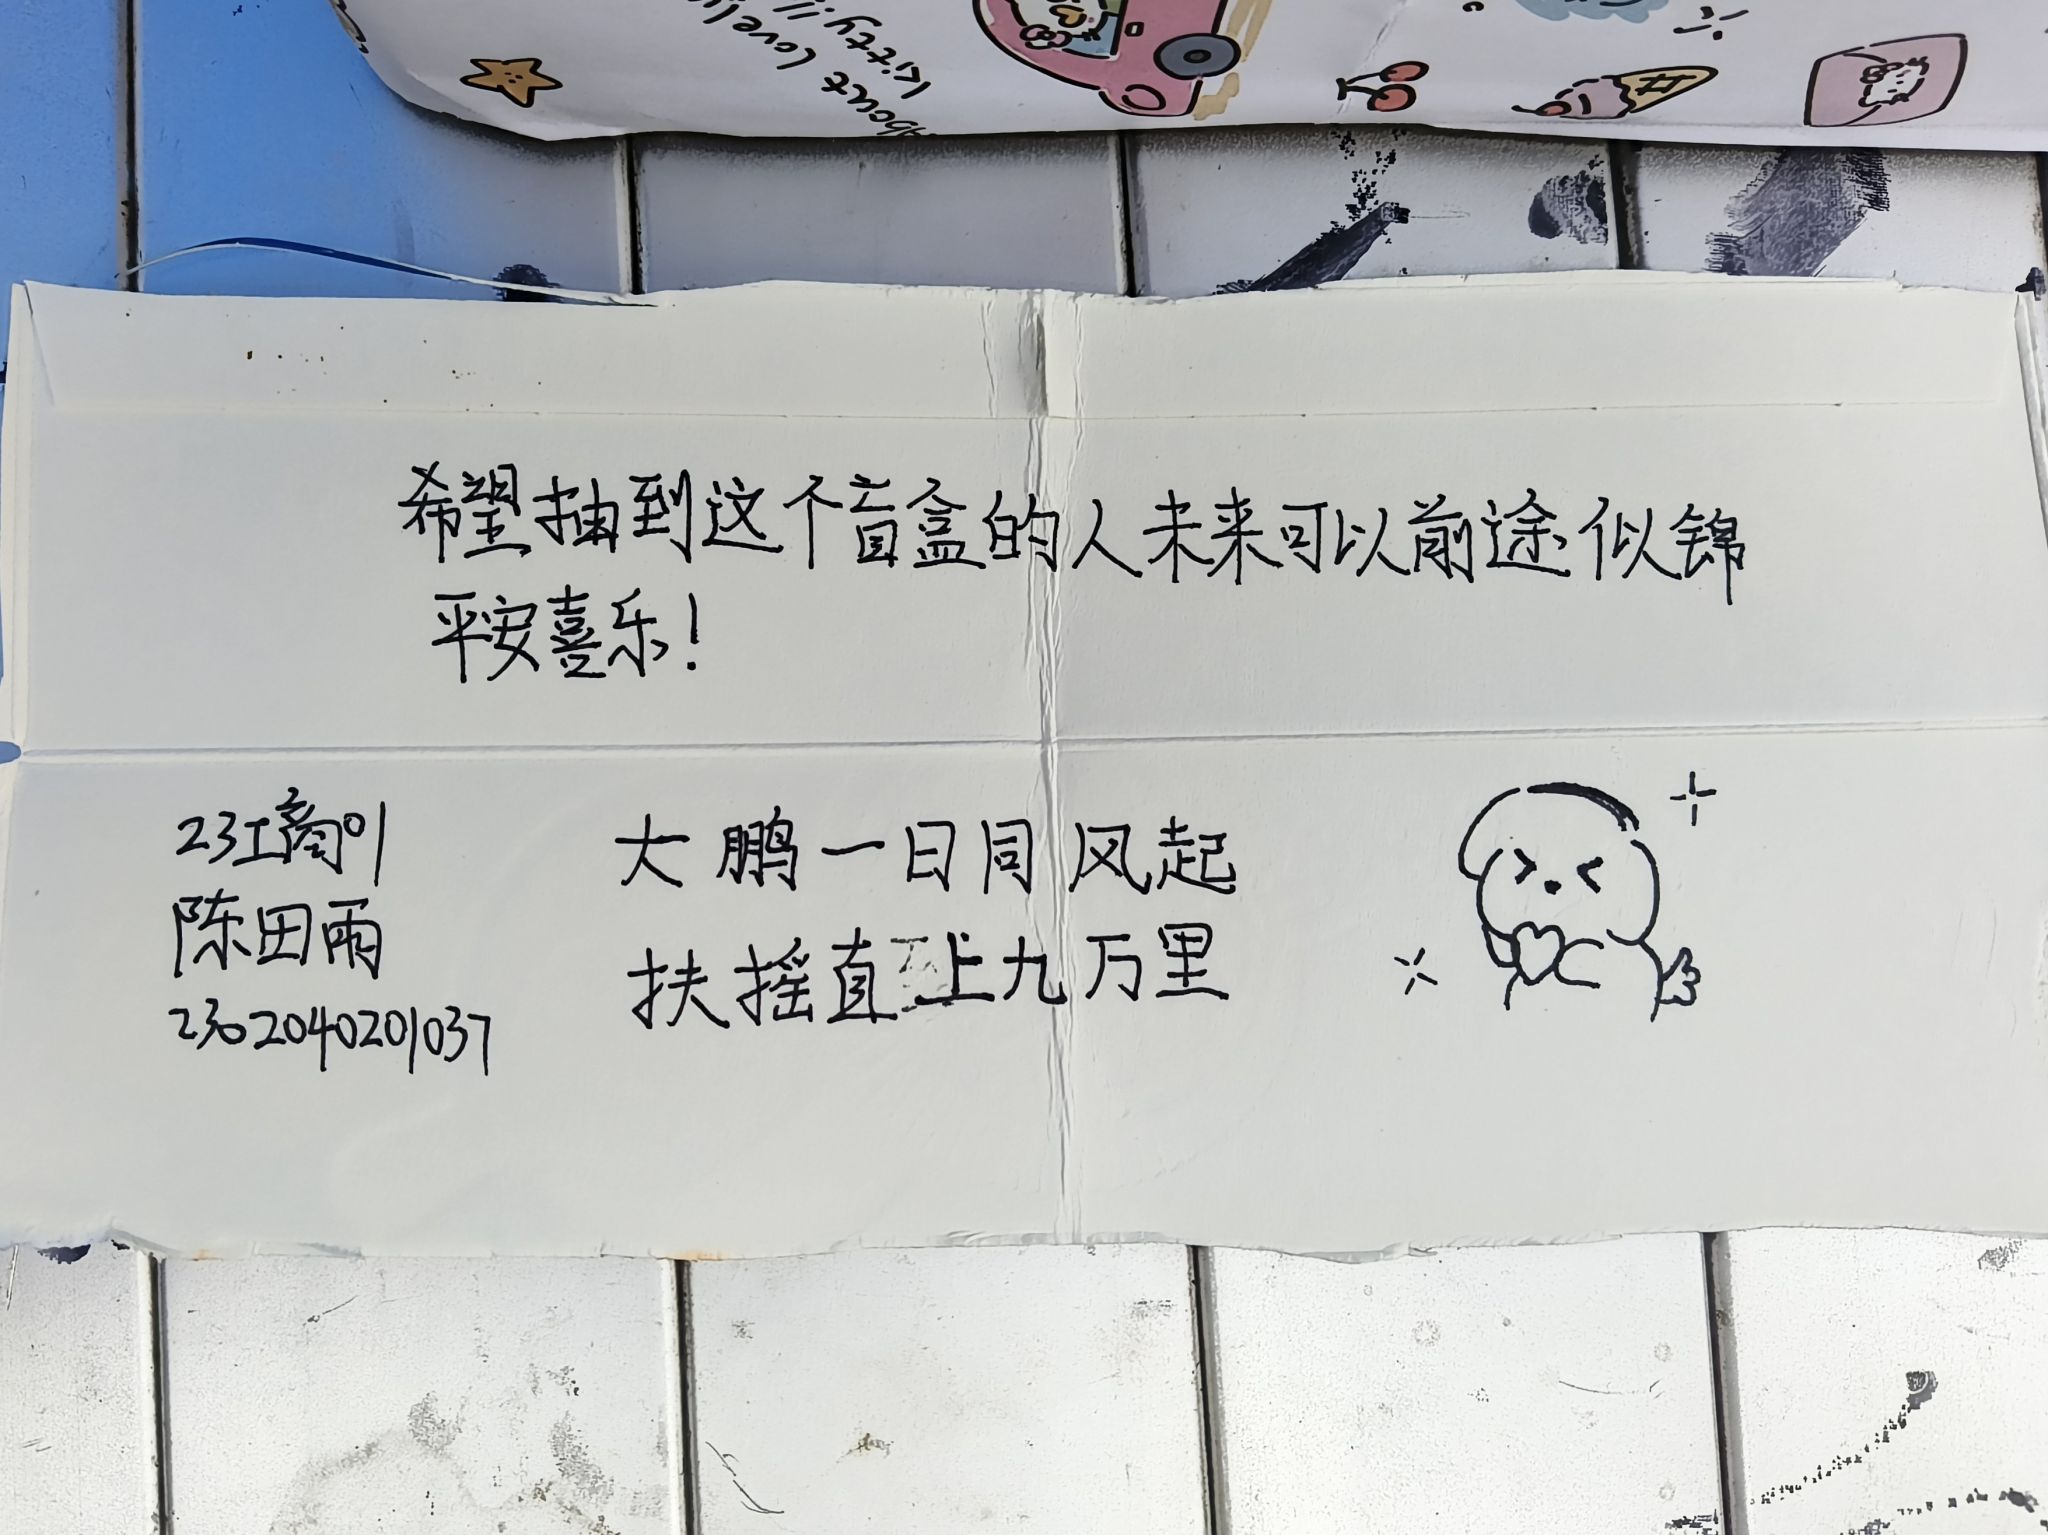 About lovely
kitty.//
希望抽到这个盲盒的人未来可以前途似锦
平安喜乐!
23工商01
陈田雨
2302040201037
大鹏一日同风起
扶摇直上九万里